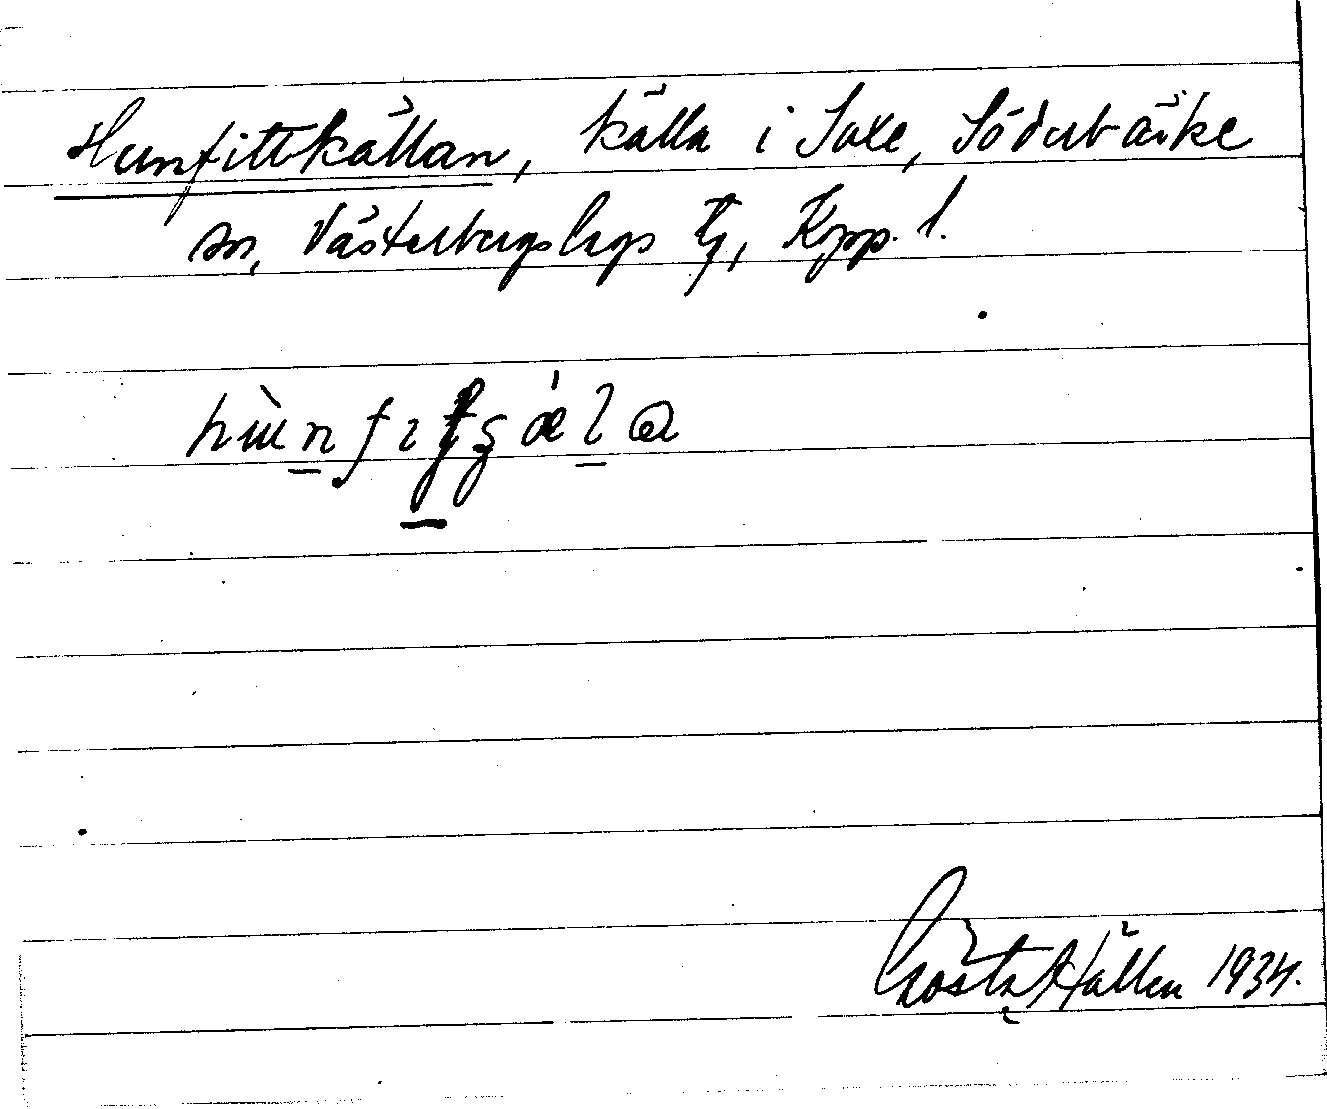 Hunfittkällan, källa i Saxe, Söderbärke
sn, Västerbergslags tg, Kopp. l.
Gösta Hallen 1934.